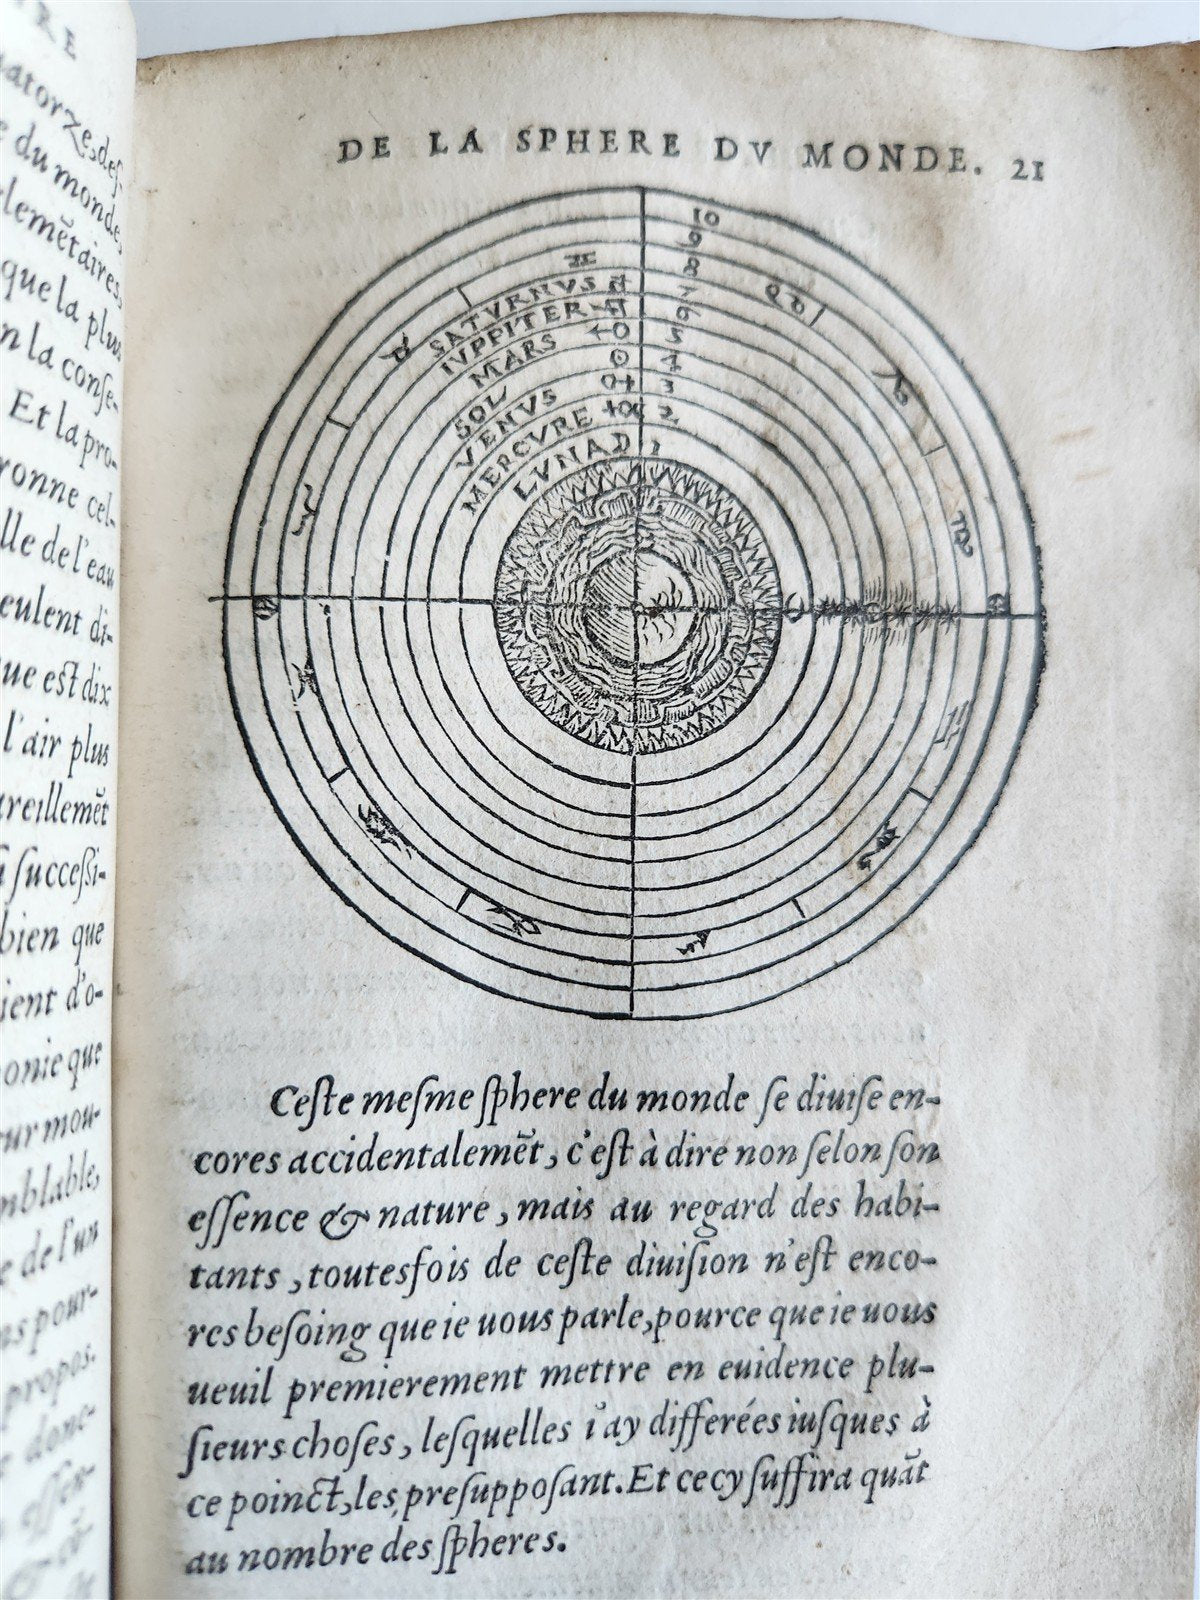 RE
natorze, des-
e du monde,
elemẽtaires,
que la plus
n la conse-
Et la pro-
ronne cel-
lle de l'eau
eulent di-
que est dix
l'air plus
areillemẽt
successi-
bien que
ient d'o-
onie que
ur mou-
mblable,
e de l'un
ns pour-
propos.
donc-
DE LA SPHERE DV MONDE. 21
10
9
8
SATVRNVS ♄ 7
IVPPITER ♃ 6
MARS ♂ 5
SOL ☉ 4
VENVS ♀ 3
MERCVRE ☿ 2
LVNA ☽ 1
Ceſte meſme ſphere du monde ſe diuiſe en-
cores accidentalemẽt, c'eſt à dire non ſelon ſon
eſſence & nature, mais au regard des habi-
tants, toutesfois de ceſte diuiſion n'eſt enco-
res beſoing que ie uous parle, pource que ie uous
ueuil premierement mettre en euidence plu-
ſieurs choſes, leſquelles i'ay differées iuſques à
ce poinct, les preſuppoſant. Et cecy ſuffira quãt
au nombre des ſpheres.